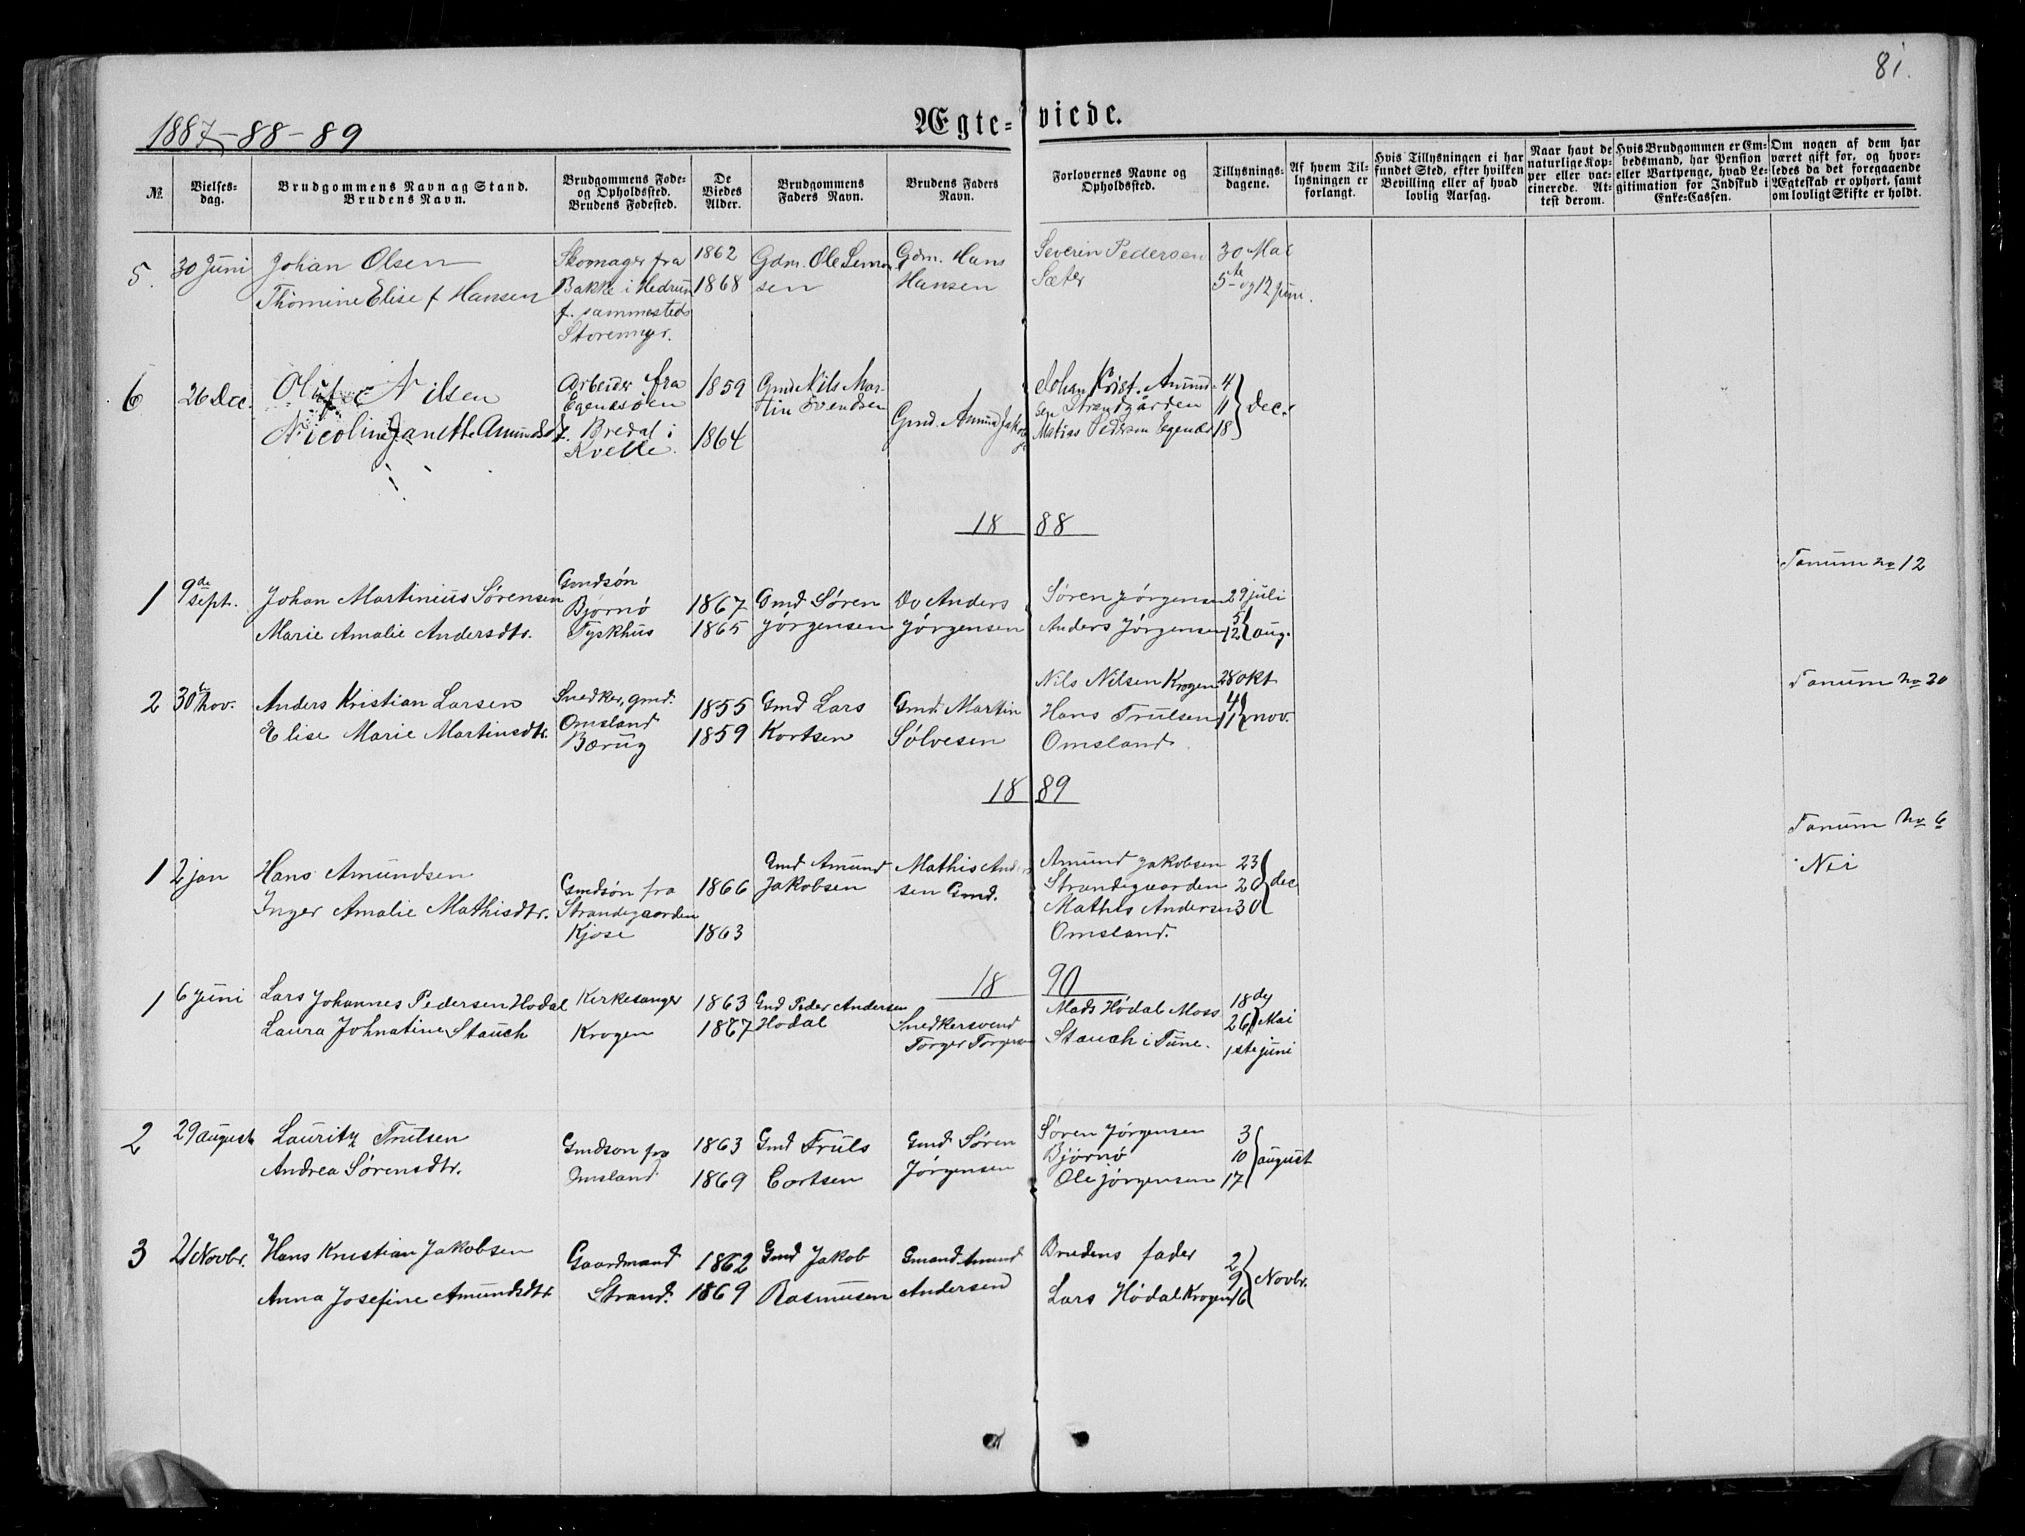 81.
1887-88-89
Ægte- viede.
№.
Vielses-
dag.
Brudgommens Navn ag Stand.
Brudens Navn.
Brudgommens Føde-
og Opholdssted.
Brudens Fødested.
De
Viedes
Alder.
Brudgommens
Faders Navn.
Brudens Faders
Navn.
Forlovernes Navne og
Opholdssted.
Tillysnings-
dagene.
Af hvem Til-
lysningen er
forlangt.
Hvis Tillysningen ei har
fundet Sted, efter hvilken
Bevilling eller af hvad
lovlig Aarsag.
Naar havt de
naturlige Kop-
per eller vac-
cinerede. At-
test derom.
Hvis Brudgommen er Em-
bedsmand, har Pension
eller Vartpenge, hvad Le-
gitimation for Indskud i
Enke-Cassen.
Om nogen af dem har
været gift før, og hvor-
ledes da det foregaaende
Ægteskab er ophørt, samt
om lovligt Skifte er holdt.
5. 30 Juni
Johan Olsen
Thomine Elise f Hansen
Skomager fra
Bakke i Hedrum
f. sammesteds
1862
1868
Gdm. Ole Simon
sen
Gdm. Hans
Hansen
Severin Pedersen
Sæter
30 Mai
5te og 12 juni.
6 26 Dec.
Nilsen
Nicoline Janethe Amundsd
Arbeider fra
f. Bredal i
Kvelle.
1859
1864
Gmd Nils Mar-
tin Evendsen
Gmd. Amund Jakob
Johan Krist. Amund-
sen Strandgården
Matias Pedersen Egenæs
4
11
18
Dec.
1888
1 9de sept.
Johan Martinius Sørensen
Marie Amalie Andersdtr.
Gmdsøn
Bjørnø
Tyskhus
1867
1865
Gmd Søren
Jørgensen
Do Anders
Jørgensen
Søren Jørgensen
Anders Jørgensen
29 juli
5
12 aug.
Tanum no 12
2 30 nov.
Anders Kristian Larsen
Elise Marie Martinsdtr.
Snedker, gmd.
Omsland
Bærug
1855
1859
Gmd Lars
Kortsen
Gmd. Martin
Sølvesen
Nils Nilsen Krogen
Hans Trulsen
Omsland.
28 okt
4
11 nov.
Tanum no 20
1889
1 2 jan
Hans Amundsen
Inger Amalie Mathisdtr.
Gmdsøn fra
Strandegaarden
Kjose
1866
1863
Gmd Amund
Jakobsen
Mathis Ander
sen Gmd.
Amund Jakobsen
Strandegaarden
Mathis Andersen
Omsland.
23
26
30
dec
Tanum No 6
Nei
1890
1 6 juni
Lars Johannes Pedersen Hodal
Laura Johnatine Stauch
Kirkesanger
Krogen
1863
1867
Gmd Peder Andersen
Hodal
Snedkersvend
Torger Torgersen
Mads Hódal Moss
Stauch i Tune.
18de
26 Mai
1ste juni
2 29 august
Lauritz Trulsen
Andrea Sørensdtr.
Gmdson fra
Omsland
1863
1869
Gmd Truls
Cortsen
Gmd Søren
Jørgensen
Søren Jørgensen
Bjørnø
Ole jørgensen
3
10
17
august
3 21 Novbr.
Hans Kristian Jakobsen
Anna Josefine Amundsdtr.
Gaardmand
Strand.
1862
1869
Gmd Jakob
Rasmusen
Gmand Amund
Andersen
Brudens fader
Lars Hódal Krogen
2
9
16
Novbr.